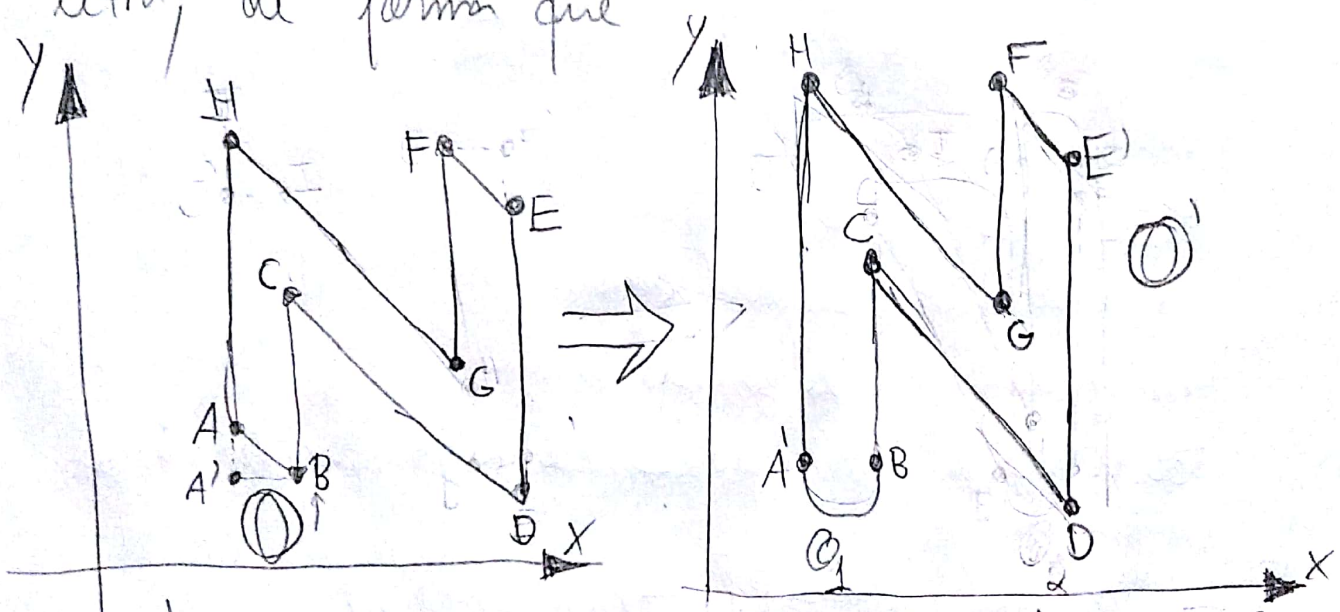 de forma que
Y
H
F
E
C
G
A
A'
B
D
X
Y
H
F
E'
C
O'
G
A'
B
O1
2
D
X